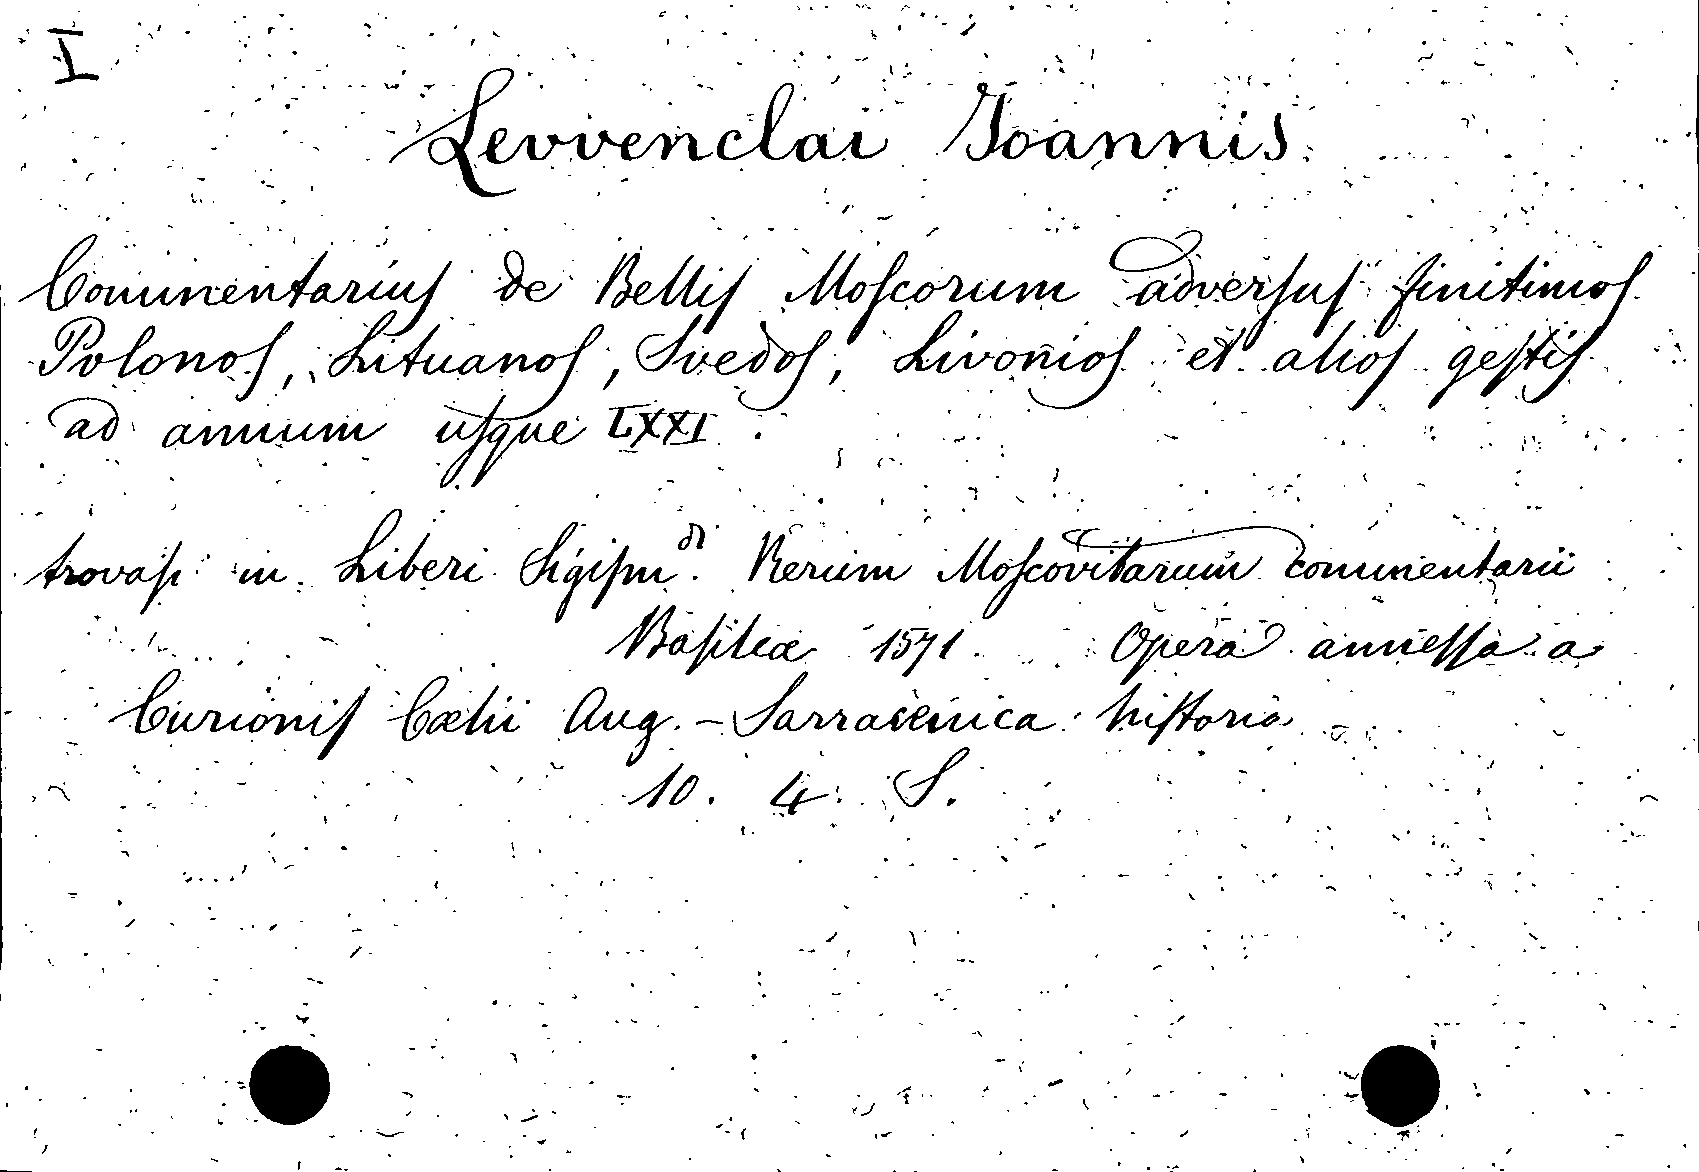 I
Levvenclai Joannis
Commentarius de Bellis Moscorum adversus finitimos
Polonos, Lituanos, Svedos, Livonios et alios gestis
ad annum usque LXXI.
trovasi in Liberi Sigism.di Rerum Moscovitarum commentarii
Basileæ 1571. Opera annessa a
Curionis Cœlii Aug. - Sarracenica historia
10. 4. S.